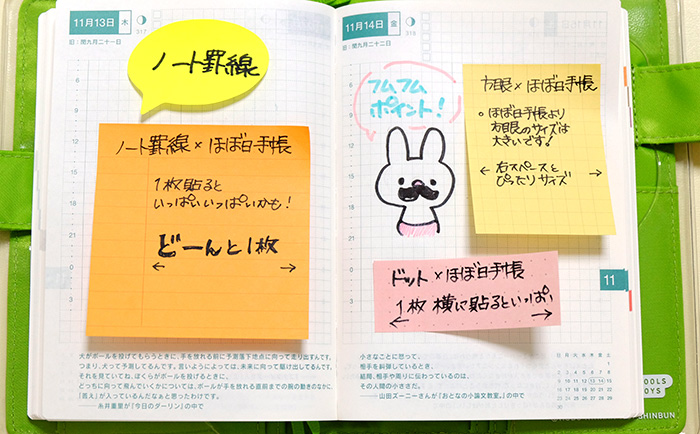 11月13日 木
317
旧:閏九月二十一日
ノート罫線
ノート罫線×ほぼ日手帳
1枚貼ると
いっぱいいっぱいかも!
どーんと1枚
← →
犬がボールを投げてもらうときに、手を放れる前に予測落下地点に向って走り出すんです。
つまり、犬って予測してるんです。言いようによっては、未来に向って駆け出してるんです。
それを見ていてね、ぼくらがボールを投げるときに、
どっちに向って飛んでいくかについては、ボールが手を放れる直前までの腕の動きのなかに、
「答え」が入っているんだなぁと思ったわけです。
──糸井重里が『今日のダーリン』の中で
11月14日 金
318
旧:閏九月二十二日
フムフム
ポイント!
方眼×ほぼ日手帳
○ ほぼ日手帳より
方眼のサイズは
大きいです!
← 右スペースと →
ぴったりサイズ
ドット×ほぼ日手帳
1枚 横に貼るといっぱい
← →
11
小さなことに怒って、
相手を糾弾しているとき、
結局、相手や周りに伝わっているのは、
その人間の小ささだ。
──山田ズーニーさんが『おとなの小論文教室。』の中で
日 月 火 水 木 金 土
1
2 3 4 5 6 7 8
9 10 11 12 13 14 15
16 17 18 19 20 21 22
23 24 25 26 27 28 29
30
TOOLS
TOYS
©MAINICHI SHINBUN